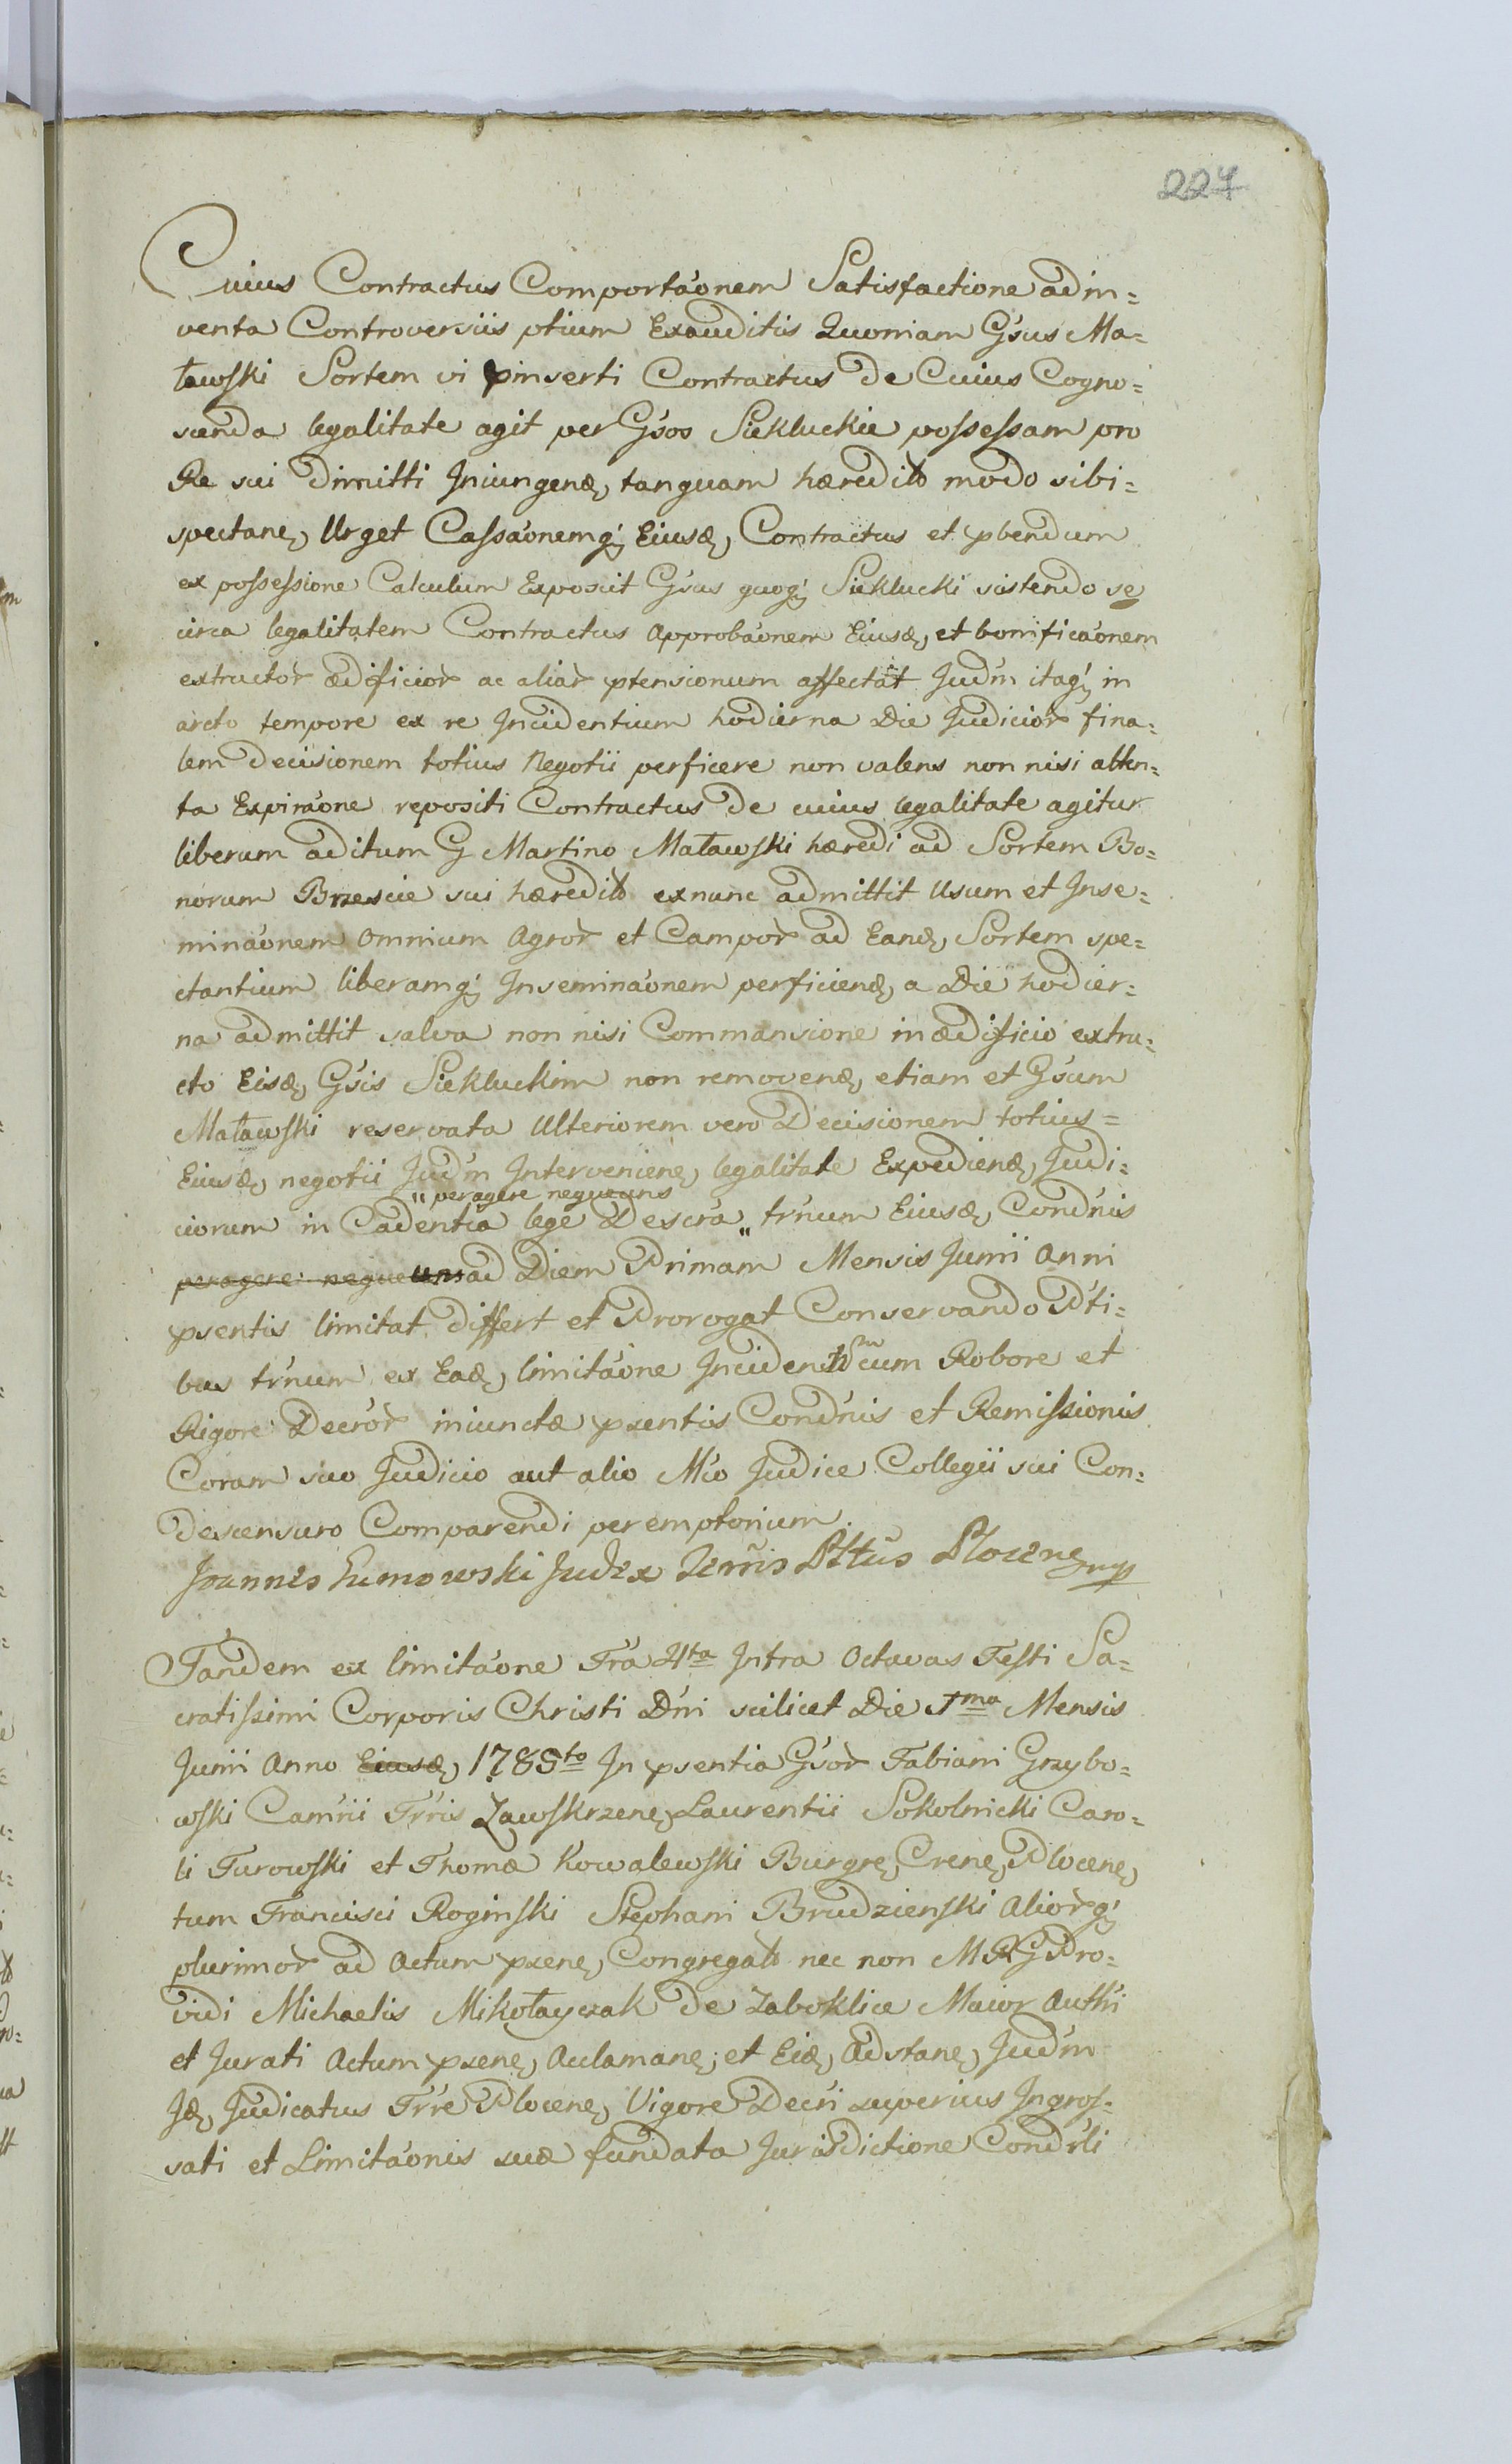 227
Cuius Contractus Comportaónem Satisfactione adin=
venta Controversiis ptium Exauditis Quoniam Gsus Ma=
ławski Sortem vi pinserti Contractus de Cuius Cogno=
scenda legalitate agit per Gsos Siekluckie possessam pro
Re sui dimitti Iniungend, tanquam hæredit modo sibi=
spectanę, Urget Cassaónemq; Eiusd, Contractus et pbendum
ex possessione Calculum Exposcit Gsus quoq; Sieklucki sistendo se
circa legalitatem Contractus Approbaónem Eiusd, et bonificaónem
extructor ædificior ac aliar ptensionum affectat Judm itaq; in
arcto tempore ex re Incidentium hodierna Die Judicior fina=
lem Decisionem totius Negotii perficere non valens non nisi atten=
ta Expiraóne repositi Contractus de cuius legalitate agitur
liberum aditum G Martino Maławski hæredi ad Sortem Bo=
norum Brzescie sui hæredit exnunc admittit Usum et Inse=
minaónem Omnium Agror et Campor ad Eand, Sortem spe=
ctantium liberamq; Inseminaónem perficiend, a Die hodier=
na admittit salva non nisi Commansione in ædificio extru=
cto Eisd, Gsis Siekluckim non removend, etiam et Gsum
Maławski reservata Ulteriorem vero Decisionem totius=
Eiusd, negotii Judm Intervenienę, legalitate Expediend, Judi=
"peragere nequeuns
ciorum in Cadentia lege Descra " trnum Eiusd, Condnis
peragere nequeuns ad Diem Primam Mensis Junii Anni
psentis limitat differt et Prorogat Conservando Pti=
bus trnum ex Ead, limitaóne Inciden cum Robore et
Rigore Decror iniunctæ psentis Condnis et Remissionis
Coram suo Judicio aut alio Mco Judice Collegii sui Con=
descensuro Comparendi peremptorium.
Joannes Sumowski Judex Terris Pttus Plocenę mp
Tandem ex limitaóne Fra 4ta Intra Octavas Festi Sa=
cratissimi Corporis Christi Dni scilicet Die 1ma Mensis
Junii Anno Eiusd, 1785to In psentia Gsor Fabiani Grzybo=
wski Camrii Trris Zawskrzenę, Laurentii Sokolnicki Caro=
li Turowski et Thomæ Kowalewski Burgrę, Crenę, Plocenę,
tum Francisci Roginski Stephani Brudzienski Aliorq;
plurimor ad Actum psenę, Congregat nec non MRG Pro=
vidi Michaelis Mikołayczak de Zaboklice Mcior Authi
et Jurati Actum psenę, Aclamanę, et Eid, Adstanę, Judm
Id, Judicatus Trre Plocenę, Vigore Decri superius Ingros=
sati et Limitaónis suæ fundata Jurisdictione Condrli